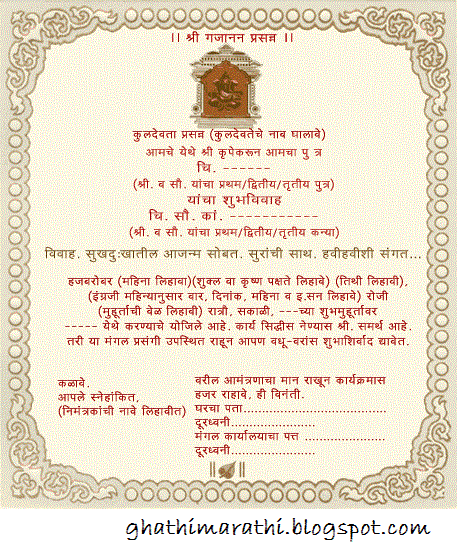 ।। श्री गजानन प्रसन्न ।।
कुलदेवता प्रसन्न (कुलदेवतेचे नाव घालावे)
आमचे येथे श्री कृपेकरून आमचा पु त्र
चि. ------
(श्री. व सौ. यांचा प्रथम/द्वितीय/तृतीय पुत्र)
यांचा शुभविवाह
चि. सौ. कां. -----------
(श्री. व सौ. यांचा प्रथम/द्वितीय/तृतीय कन्या)
विवाह. सुखदुःखातील आजन्म सोबत. सुरांची साथ. हवीहवीशी संगत...
हजबरोबर (महिना लिहावा)(शुक्ल वा कृष्ण पक्षते लिहावे) (तिथी लिहावी),
(इंग्रजी महिन्यानुसार वार, दिनांक, महिना व इ.सन लिहावे) रोजी
(मुहूर्ताची वेळ लिहावी) रात्री, सकाळी, ---च्या शुभमुहूर्तावर
----- येथे करण्याचे योजिले आहे. कार्य सिद्धीस नेण्यास श्री. समर्थ आहे.
तरी या मंगल प्रसंगी उपस्थित राहून आपण वधू-वरांस शुभाशिर्वाद द्यावेत.
कळावे.
आपले स्नेहांकित,
(निमंत्रकांची नावे लिहावीत)
वरील आमंत्रणाचा मान राखून कार्यक्रमास
हजर राहावे, ही विनंती.
घरचा पता...................................
दूरध्वनी.....................
मंगल कार्यालयाचा पत्त ....................
दूरध्वनी.....................
ghathimarathi.blogspot.com